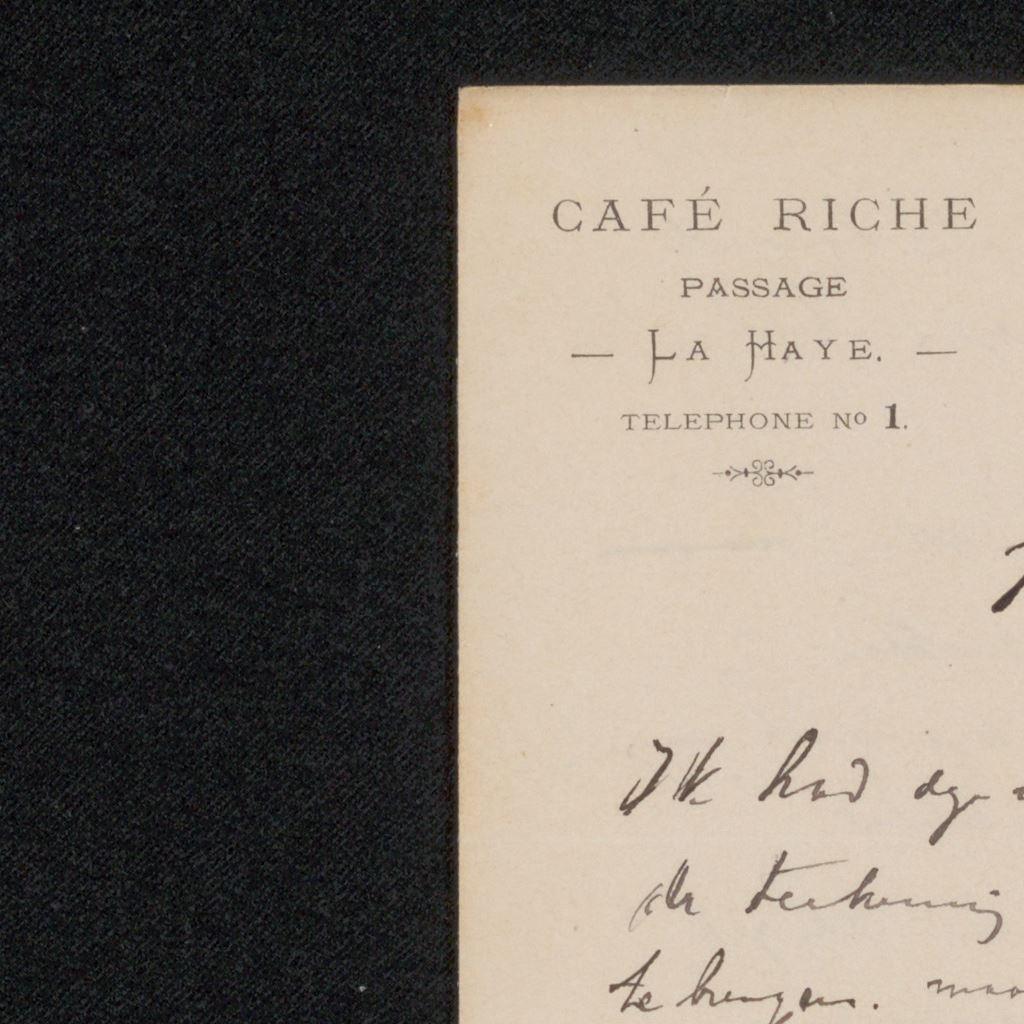 CAFÉ RICHE
PASSAGE
— LA HAYE. —
TELEPHONE No 1.
Ik had
de teekening
te brengen. maa